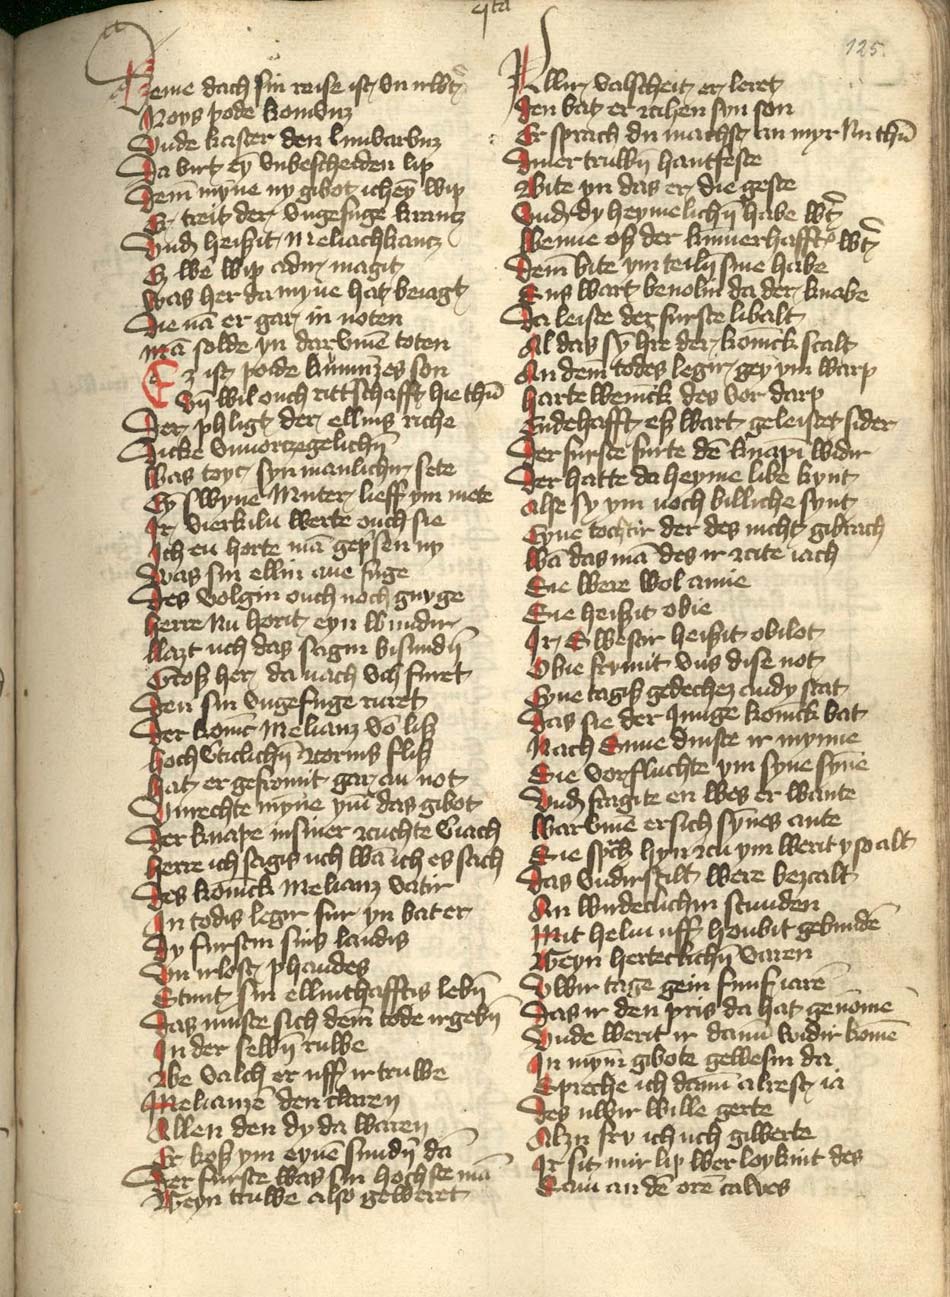 125
Deme dach sin reise ist vn wert
Poys pode komvnz
Vnde kaster den Linvarvnz
Da virt ey vnbescheiden lip
Dem myne ny gibot ichey wip
Er treit der vngefuge krantz
Vnd heiszit Meliachkantz
Ez we wip adir magit
Was her da myne hat beiagt
Die nā er gar in noten
mā solde yn darvme toten
Ez ist poide kumunzes son
Vn̄ wil ouch rittschafft hie thū
Der phligt der ellins riche
Dicke vnuortzegelichn̄
Was toyc syn manlichir sete
Ey swyne Muter lieff ym mete
Ir vierkilu werte ouch sie
Ich en horte mā geprisen ny
Was sin ellin ane fuge
Des volgin ouch noch gnyge
Herre Nu horit eyn wundir
llazt uch das sagin bisundn̄
Grosz her da nach vch furet
Den sin vngefuge ruret
Der konic Melianz vō lisz
hoch verticlichn̄ zcornis flisz
hat er gefromit gar an not
Vnrechte myne ym das gibot
Der knape in siner zcuchte v̄iach
Herre ich sagis uch wā ich es sach
Des konick Melianz vatir
In todis legir fur yn bat er
Dy fursten sins landis
Vn irlost phandes
Stunt sin ellinthafftis lebn̄
Das muste sich dem tode irgebn̄
In der selwn̄ ruwe
Be valch er uff ir truwe
Melianze den claren
Allen den dy da waren
Er kosz ym eynē sundn̄ dā
Der furste was sin hochste mā
Geyn truwe also geweret
Allir valscheit er leret
Den bat er zcihen syn son
Er sprach du machst an myr Nu thū
Diner truwn̄ hantfeste
Bite yn das er die geste
Vnd dy heymelichn̄ habe wert
Wenne osz der kumerhaffte wert
Dem bite ym teiln̄ sine habe
Sus wart benolin da der knabe
Da leiste der furste libalt
Al das sy hre der konick scalt
An dem todes legir gey ym warp
harte wenick des vor darp
Endehafft esz wart geleistet sider
Der furste furte dē knapī widir
Der hatte da heyme libe kynt
Alse sy ym noch billiche synt
Eyne tochtir der des nicht gibrach
Wā das mā des ir zcite iach
Sie were wol amie
Sie heiszit obie
Ir Swestir heiszit obilot
Obie frumit vns dise not
Eyne tagisz gedechez andy stat
Das sie der Iunge konick bat
Nach Sinne dinste ir mynne
Sie vorfluchte ym syne synē
Vnd fragite en wes er wante
Warvmē er sich synes ante
Sie sprach hyn zcu ym werit yr so alt
Das vndir schilt were bezcalt
An wirdeclichin stunden
Mit helm uff houbit gebundē
Geyn herteclichn̄ varen
Vwir tage gein funf iarē
Das ir den pris da hat genōmē
Vnde werit ir dannē widir komē
In mynn gibote gewesin da
Spreche ich dannē alrest ia
Des uwir wille gerte
Alzu fru ich uch giwerte
Ir sit mir lip wer loykint des
Sam an dē orē calves